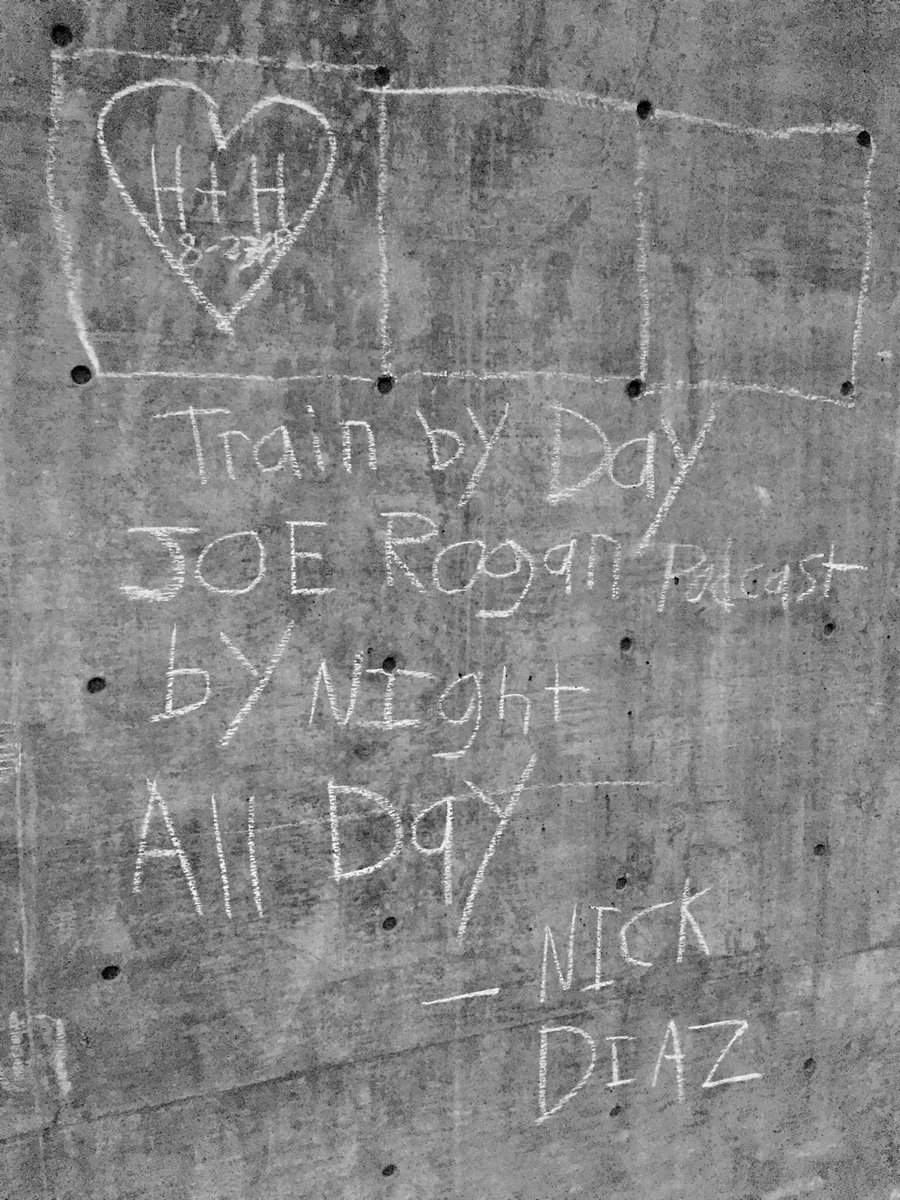 H+H
Train by Day
JOE Rogan Podcast
by NIght
All Day
— NICK
DIAZ